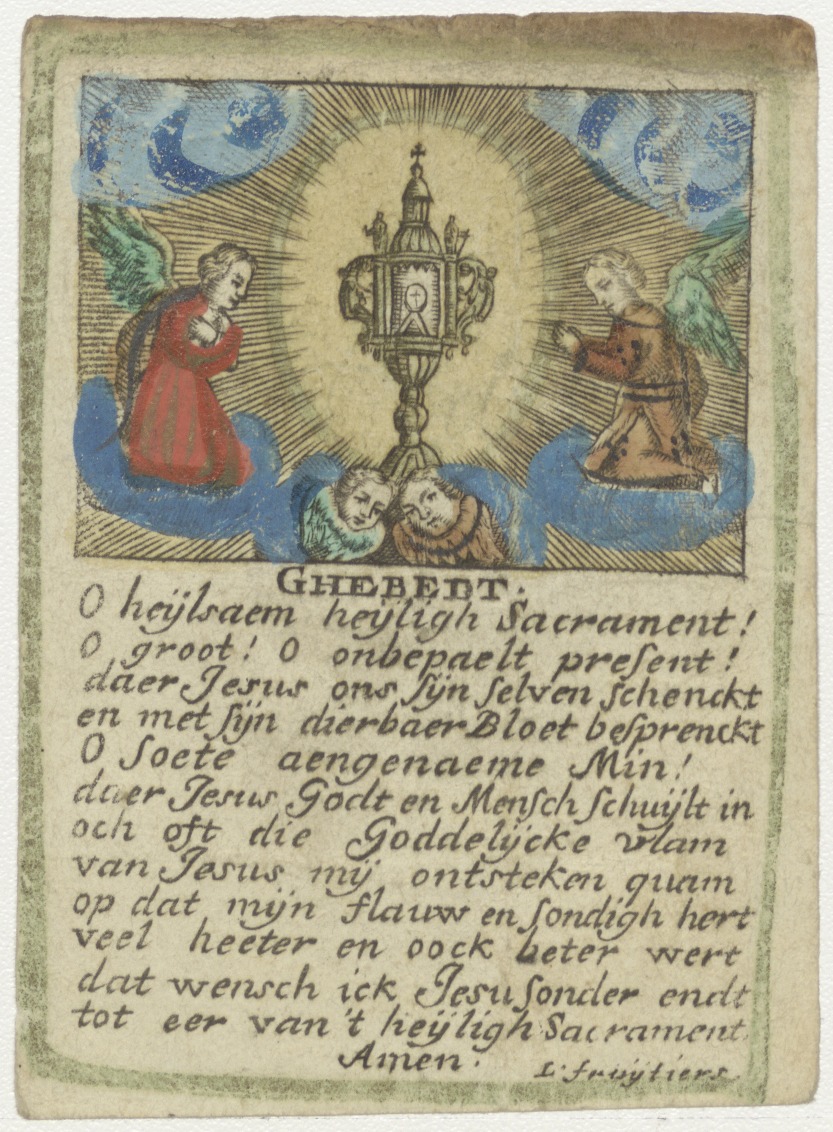 GHEBEDT.
O heijlsaem heijligh Sacrament!
O groot! O onbepaelt preſent!
daer Jesus ons ſijn ſelven ſchenckt
en met ſijn dierbaer Bloet beſprenckt
O ſoete aengenaeme Min!
daer Jesus Godt en Menſch ſchuijlt in
och oft die Goddelijcke vlam
van Jesus mij ontsteken quam
op dat mijn flauw en ſondigh hert
veel heeter en oock beter wert
dat wensch ick Jesu ſonder endt
tot eer van't heijligh Sacrament
Amen.
L. fruijtiers